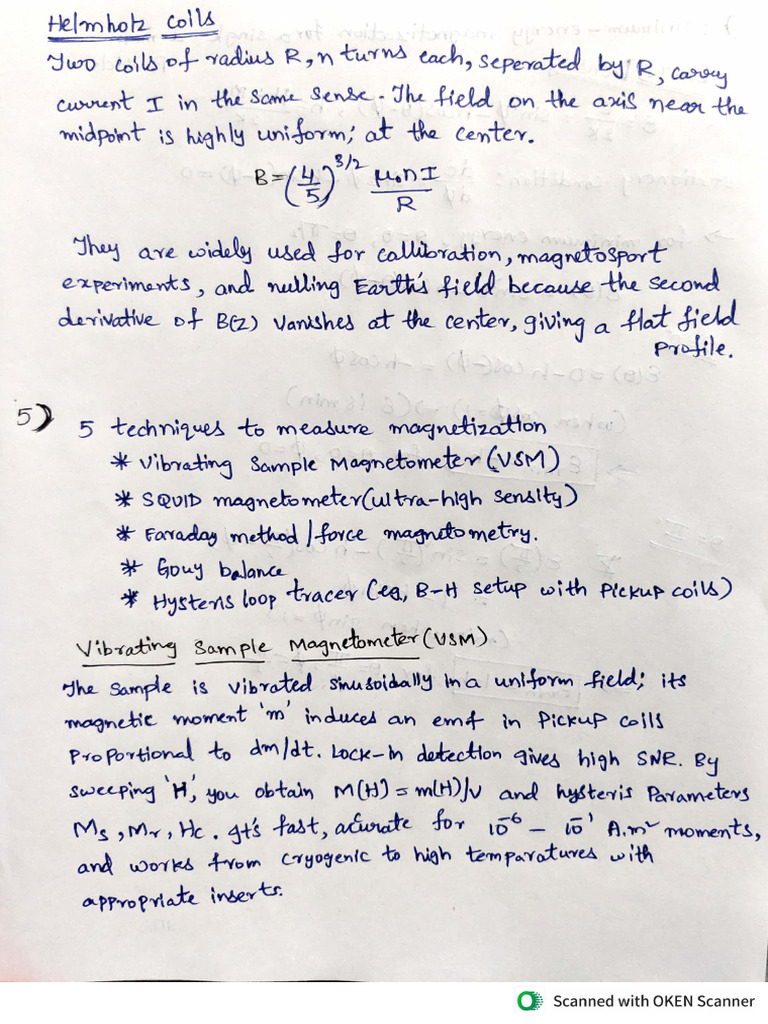 Helmholz coils
Two coils of radius R, n turns each, seperated by R, carry
current I in the same sense. The field on the axis near the
midpoint is highly uniform; at the center.
B = (4/5)^3/2 μ₀nI/R
They are widely used for callibration, magnetosport
experiments, and nulling Earth's field because the second
derivative of B(z) vanishes at the center, giving a flat field
profile.
5) 5 techniques to measure magnetization
* Vibrating Sample Magnetometer (VSM)
* SQUID magnetometer (ultra-high sensity)
* Faraday method / force magnetometry.
* Gouy balance
* Hysteris loop tracer (eg, B-H setup with Pickup coils)
Vibrating Sample Magnetometer (VSM)
The sample is vibrated sinusoidally in a uniform field; its
magnetic moment 'm' induces an emf in Pickup coils
Proportional to dm/dt. Lock-in detection gives high SNR. By
sweeping 'H', you obtain M(H) = m(H)/v and hysteris Parameters
Ms, Mr, Hc. It's fast, acurate for 10⁻⁶ – 10⁻¹ A.m² moments,
and works from cryogenic to high temparatures with
appropriate inserts.
Scanned with OKEN Scanner